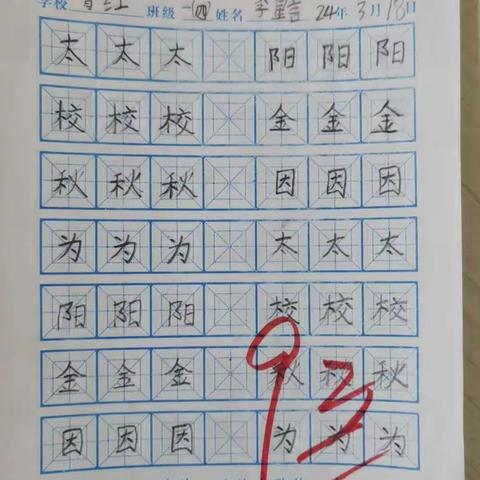 学校 育红 班级 一(四) 姓名 李 24年3月18日
太 太 太 阳 阳 阳
校 校 校 金 金 金
秋 秋 秋 因 因 因
为 为 为 太 太 太
阳 阳 阳 校 校 校
金 金 金 秋 秋 秋
因 因 因 为 为 为
93